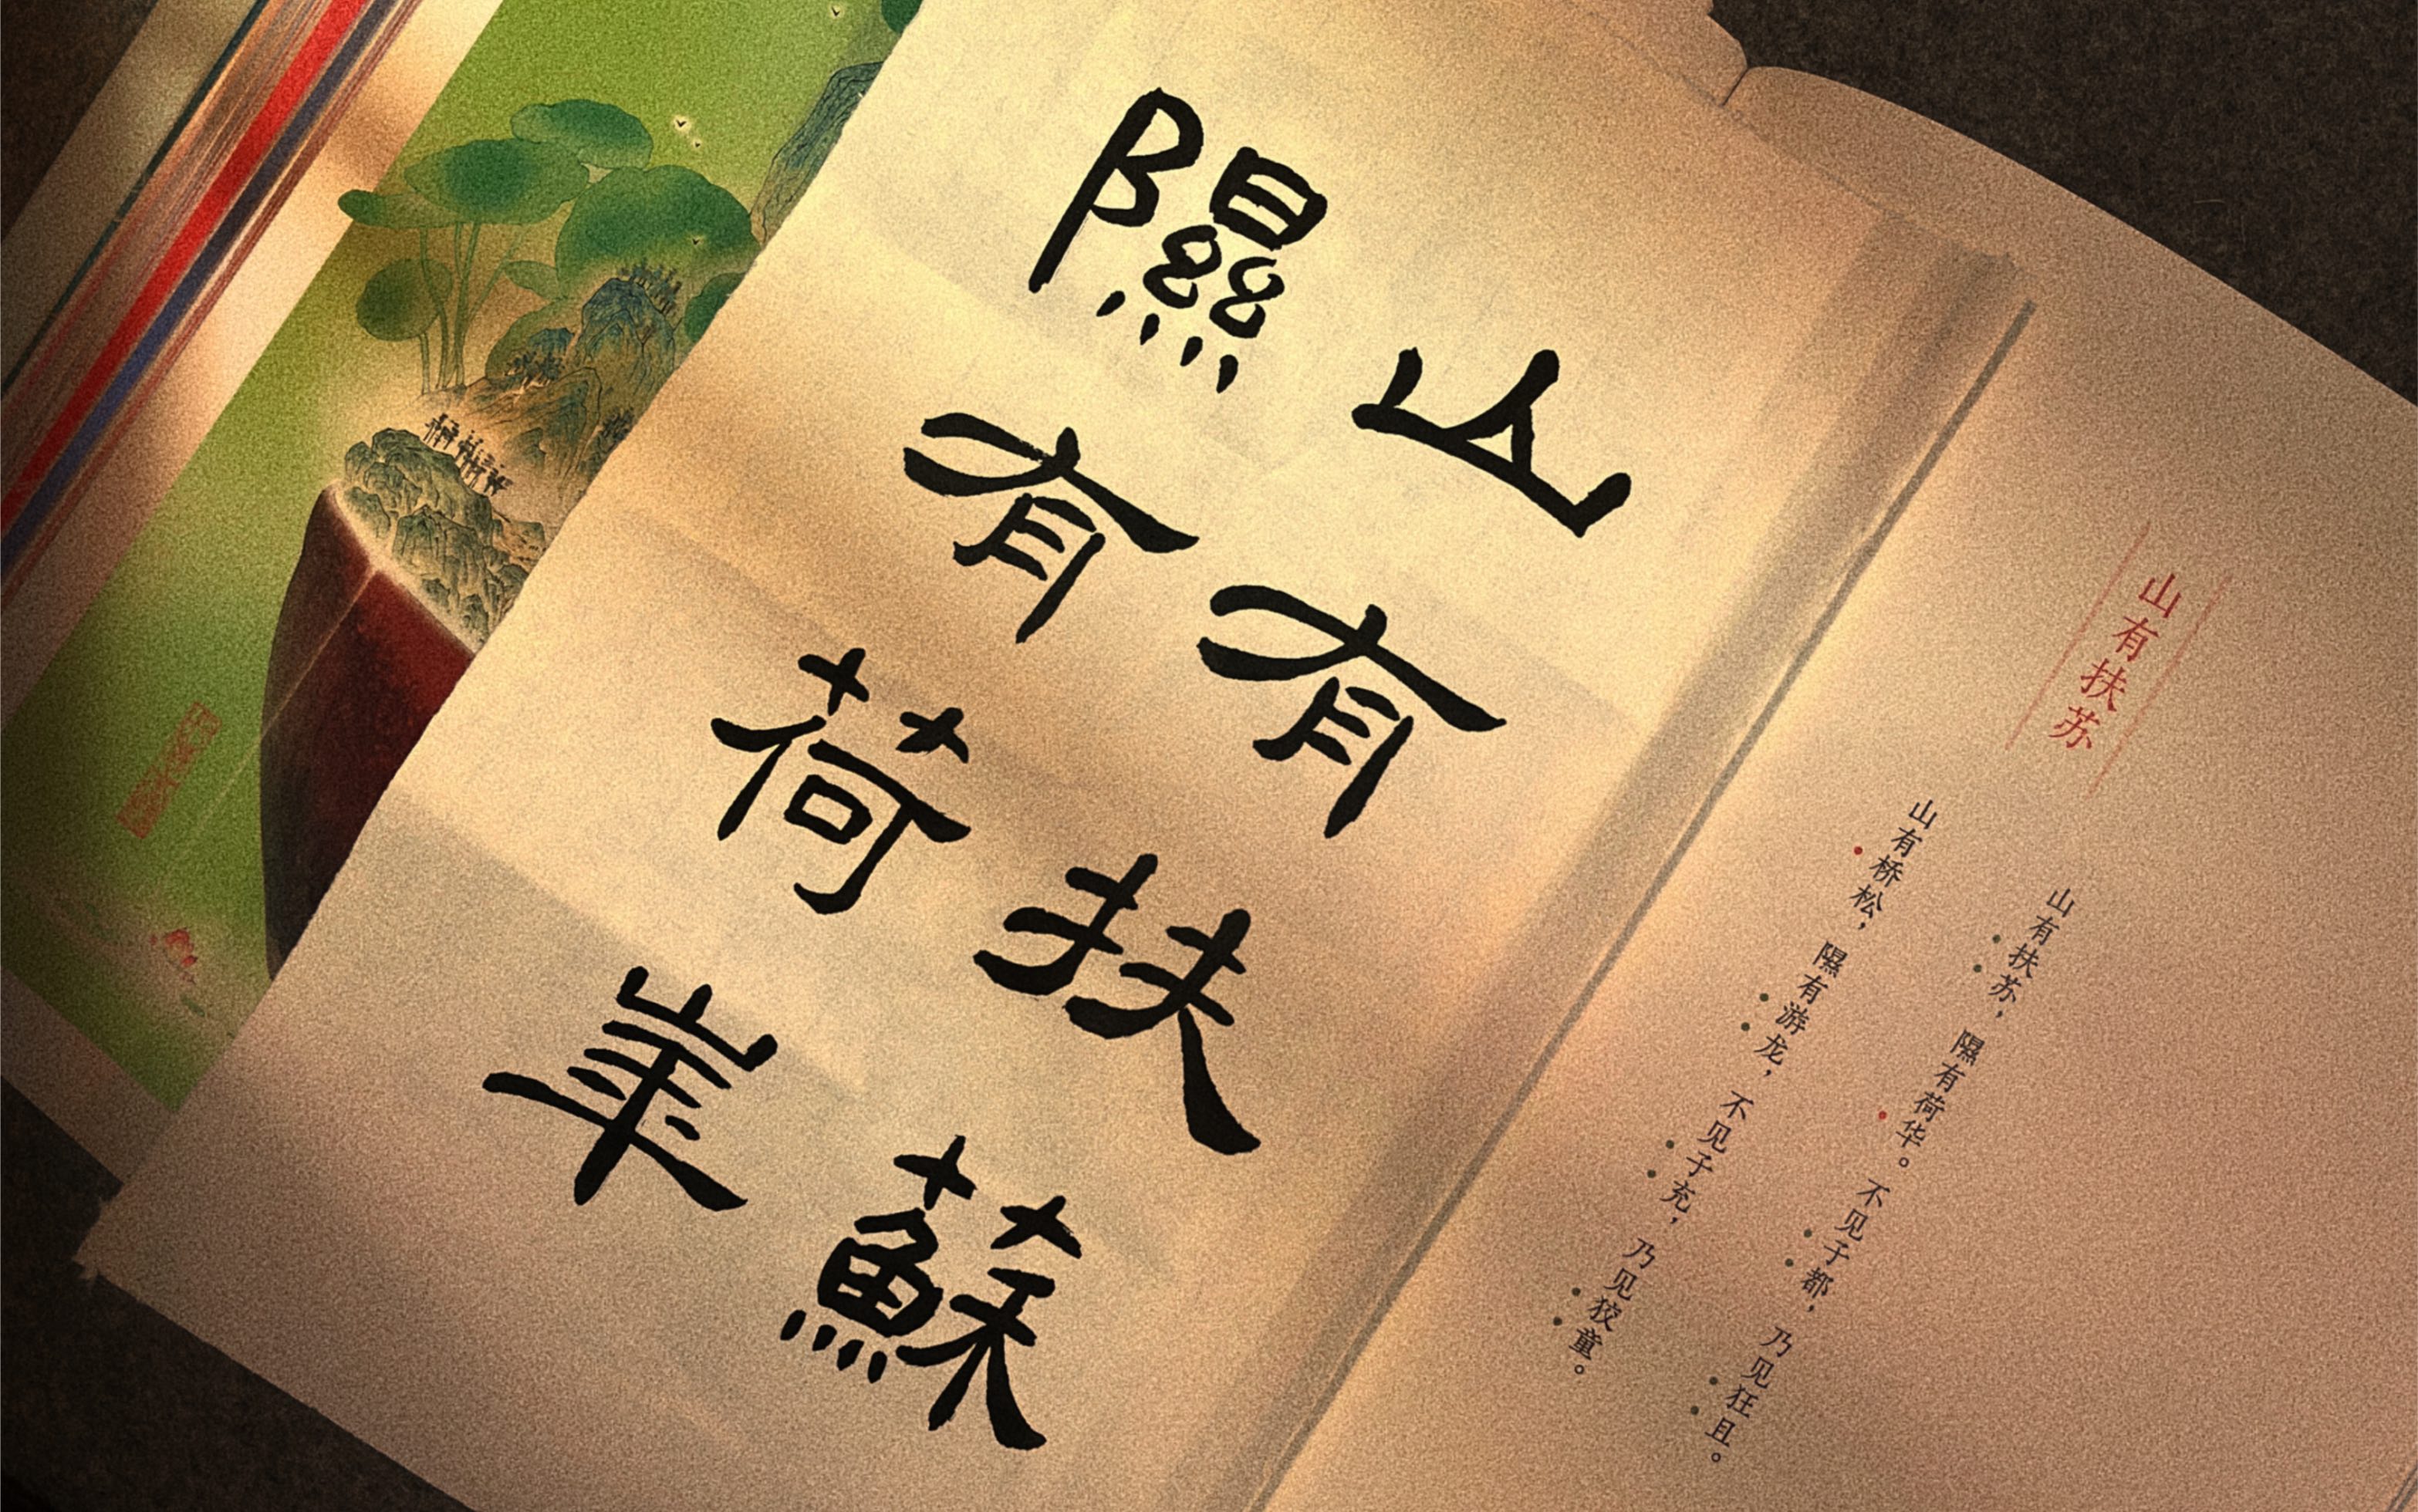 山有扶苏
山有扶苏，隰有荷华。不见子都，乃见狂且。
山有桥松，隰有游龙，不见子充，乃见狡童。
山有扶蘇
隰有荷華